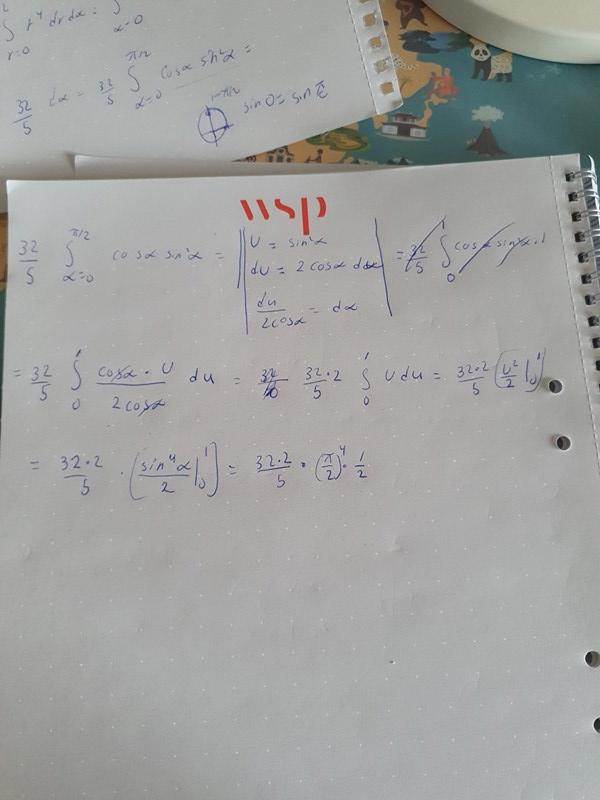 ∫ r⁴ dr dα = ∫
r=0 α=0
32/5 dα = 32/5 ∫_{α=0}^{π/2} cosα sin²α =
sin0 = sin
wsp
32/5 ∫_{α=0}^{π/2} cosα sin²α = | U = sin²α
du = 2cosα dα
du/2cosα = dα | = 32/5 ∫_0^1 cosα sin²α · 1
= 32/5 ∫_0^1 cosα · U / 2cosα du = 32/10 32·2/5 ∫_0^1 U du = 32·2/5 (U²/2 |_0^1)
= 32·2/5 · (sin⁴α/2 |_0^1) = 32·2/5 · (π/2)⁴ · 1/2